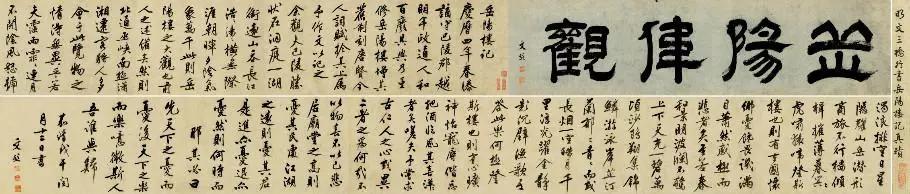 明文三橋行書岳陽樓記真蹟
岳陽偉觀
文彭
岳陽樓記
慶曆四年春滕子京
謫守巴陵郡越
明年政通人和
百廢具興乃重
修岳陽樓增其
舊制刻唐賢今
人詞賦於其上屬
予作文以記之
予觀夫巴陵勝
狀在洞庭一湖
銜遠山吞長江
浩浩湯湯橫無際
涯朝暉夕陰氣
象萬千此則岳
陽樓之大觀也前
人之述備矣然則
北通巫峽南極瀟
湘遷客騷人多
會于此覽物之
情得無異乎若
夫霪雨霏霏連月
不開陰風怒號
濁浪排空日星
隱耀山岳潛形
商旅不行檣傾
楫摧薄暮冥冥
虎嘯猿啼登斯
樓也則有去國懷鄉
憂讒畏譏滿
目蕭然感極而
悲者矣至若春和
景明波瀾不驚
上下天光一碧萬
頃沙鷗翔集錦
鱗游泳岸芷汀
蘭郁郁青青而或
長煙一空皓月千
里浮光躍金靜
影沉璧漁歌互答
此樂何極登
斯樓也則有心曠
神怡寵辱偕忘
把酒臨風其喜洋洋
者矣嗟夫予嘗求
古仁人之心或異
二者之為何哉不
以物喜不以己悲
居廟堂之高則
憂其民處江湖
之遠則憂其君
是進亦憂退亦
憂然則何時而樂
耶其必曰
先天下之憂而
憂後天下之樂
而樂歟噫微斯人
吾誰與歸
嘉靖戊午閏
月十三日書
文彭